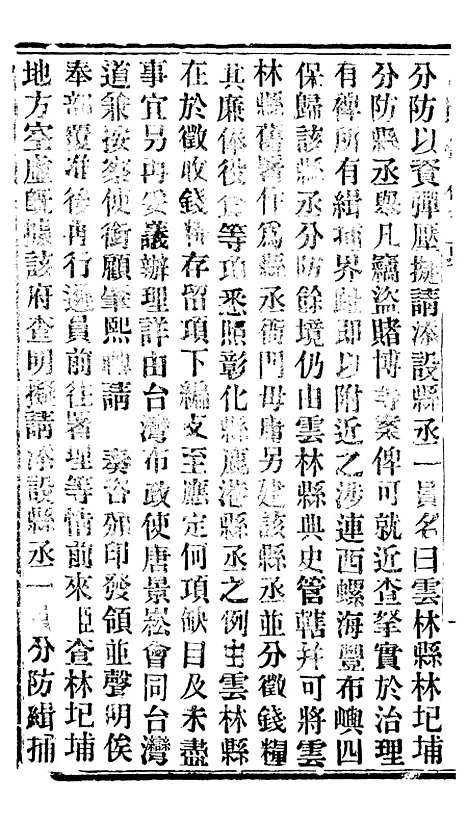 分防以資彈壓擬請添設縣丞一員名曰雲林縣林圯埔
分防縣丞舉凡竊盜賭博等案俾可就近查拏實於治理
有裨所有緝捕界址即以附近之沙連西螺海豐布嶼四
保歸該縣丞分防餘境仍由雲林縣典史管轄并可將雲
林縣舊署作爲縣丞衙門毋庸另建該縣丞並分徵錢糧
其廉俸役食等項悉照彰化縣鹿港縣丞之例由雲林縣
在於徵收錢糧存留項下編支至應定何項缺目及未盡
事宜另再妥議辦理詳由台灣布政使唐景崧會同台灣
道兼按察使銜顧肇熙 請 奏咨頒印發領並聲明俟
奉部覆准後再行遴員前往署理等情前來臣查林圯埔
地方空虛旣據該府查明擬請添設縣丞一員分防緝捕